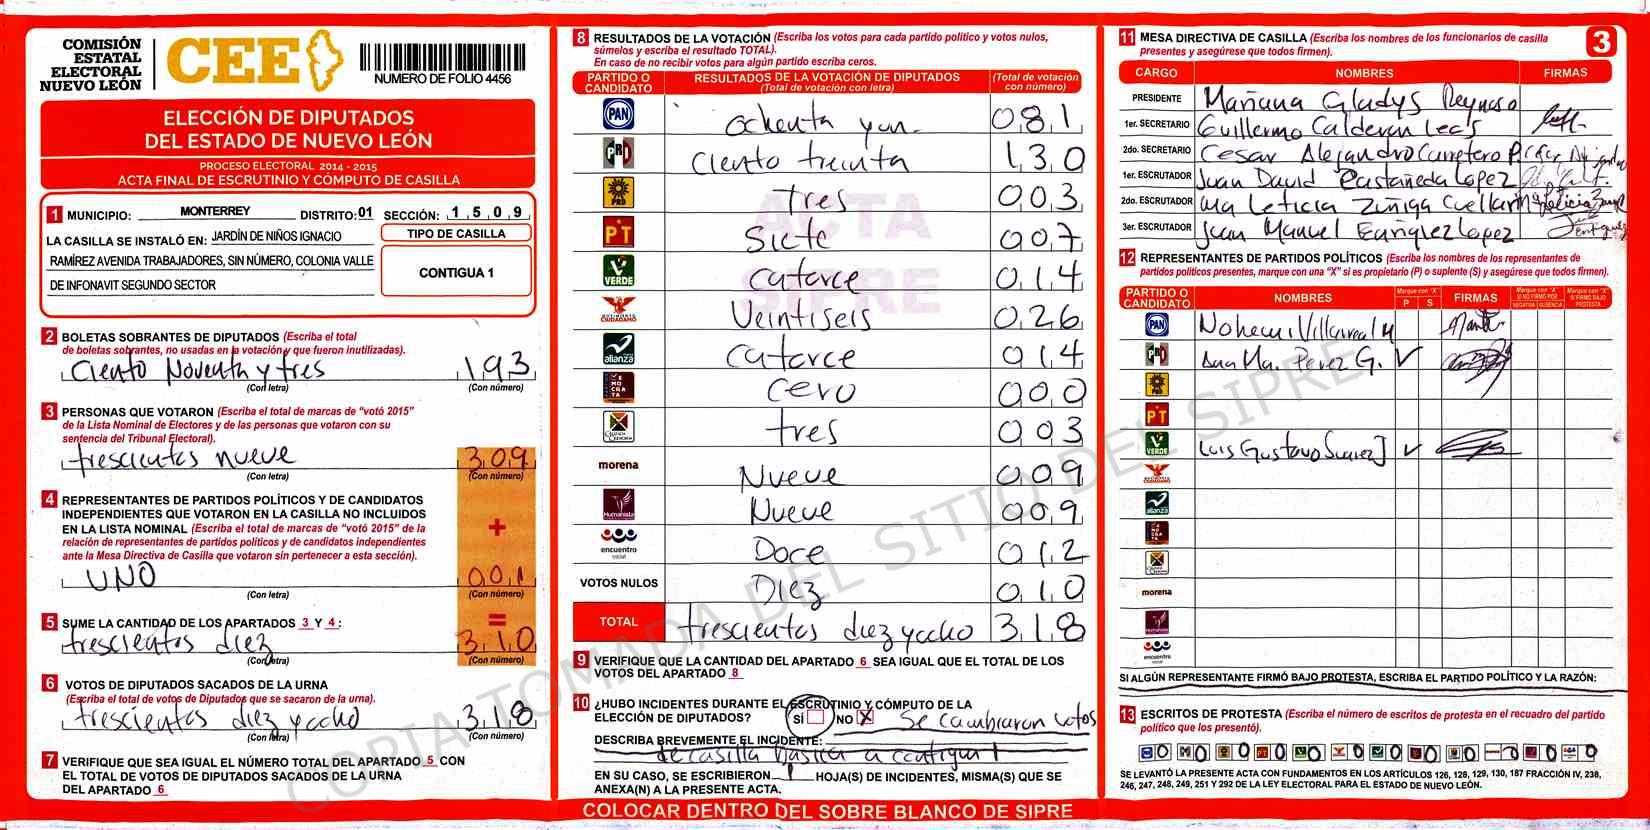 COMISIÓN
ESTATAL
ELECTORAL
NUEVO LEÓN
CEE
NUMERO DE FOLIO 4456
ELECCIÓN DE DIPUTADOS
DEL ESTADO DE NUEVO LEÓN
PROCESO ELECTORAL 2014 - 2015
ACTA FINAL DE ESCRUTINIO Y CÓMPUTO DE CASILLA
1 MUNICIPIO: MONTERREY DISTRITO: 01 SECCIÓN: 1,5,0,9
LA CASILLA SE INSTALÓ EN: JARDÍN DE NIÑOS IGNACIO
RAMÍREZ AVENIDA TRABAJADORES, SIN NÚMERO, COLONIA VALLE
DE INFONAVIT SEGUNDO SECTOR
TIPO DE CASILLA
CONTIGUA 1
2 BOLETAS SOBRANTES DE DIPUTADOS (Escriba el total
de boletas sobrantes, no usadas en la votación y que fueron inutilizadas).
Ciento Noventa y tres 193
(Con letra) (Con número)
3 PERSONAS QUE VOTARON (Escriba el total de marcas de "votó 2015"
de la Lista Nominal de Electores y de las personas que votaron con su
sentencia del Tribunal Electoral).
trescientos nueve 309
(Con letra) (Con número)
4 REPRESENTANTES DE PARTIDOS POLÍTICOS Y DE CANDIDATOS
INDEPENDIENTES QUE VOTARON EN LA CASILLA NO INCLUIDOS
EN LA LISTA NOMINAL (Escriba el total de marcas de "votó 2015" de la
relación de representantes de partidos políticos y de candidatos independientes
ante la Mesa Directiva de Casilla que votaron sin pertenecer a esta sección).
+
UNO 001
(Con letra) (Con número)
=
5 SUME LA CANTIDAD DE LOS APARTADOS 3 Y 4:
trescientos diez 310
(Con letra) (Con número)
6 VOTOS DE DIPUTADOS SACADOS DE LA URNA
(Escriba el total de votos de Diputados que se sacaron de la urna).
trescientos diez yocho 318
(Con letra) (Con número)
7 VERIFIQUE QUE SEA IGUAL EL NÚMERO TOTAL DEL APARTADO 5 CON
EL TOTAL DE VOTOS DE DIPUTADOS SACADOS DE LA URNA
DEL APARTADO 6
8 RESULTADOS DE LA VOTACIÓN (Escriba los votos para cada partido político y votos nulos,
súmelos y escriba el resultado TOTAL).
En caso de no recibir votos para algún partido escriba ceros.
PARTIDO O CANDIDATO RESULTADOS DE LA VOTACIÓN DE DIPUTADOS (Total de votación con letra) (Total de votación con número)
PAN ochenta yun 081
PRI Ciento treinta 130
PRD tres 003
PT Siete 007
VERDE catorce 014
MOVIMIENTO CIUDADANO Veintiseis 026
alianza catorce 014
DEMOCRATA cero 000
CRUZADA CIUDADANA tres 003
morena Nueve 009
Humanista Nueve 009
encuentro social Doce 012
VOTOS NULOS Diez 010
TOTAL trescientos diez yocho 318
ACTA
SIPRE
9 VERIFIQUE QUE LA CANTIDAD DEL APARTADO 6 SEA IGUAL QUE EL TOTAL DE LOS
VOTOS DEL APARTADO 8
10 ¿HUBO INCIDENTES DURANTE EL ESCRUTINIO Y CÓMPUTO DE LA
ELECCIÓN DE DIPUTADOS? SÍ NO X Se cambiaron votos
DESCRIBA BREVEMENTE EL INCIDENTE:
de casilla basica a contigua 1
EN SU CASO, SE ESCRIBIERON 1 HOJA(S) DE INCIDENTES, MISMA(S) QUE SE
ANEXA(N) A LA PRESENTE ACTA.
COLOCAR DENTRO DEL SOBRE BLANCO DE SIPRE
11 MESA DIRECTIVA DE CASILLA (Escriba los nombres de los funcionarios de casilla
presentes y asegúrese que todos firmen).
3
CARGO NOMBRES FIRMAS
PRESIDENTE Mariana Gladys Reynoso
1er. SECRETARIO Guillermo Calderon Leos
2do. SECRETARIO Cesar Alejandro Carretero P.
1er. ESCRUTADOR Juan David Castañeda Lopez
2do. ESCRUTADOR Ma Leticia Zuñiga Cuellar
3er. ESCRUTADOR Juan Manuel Enriquez Lopez
12 REPRESENTANTES DE PARTIDOS POLÍTICOS (Escriba los nombres de los representantes de
partidos políticos presentes, marque con una "X" si es propietario (P) o suplente (S) y asegúrese que todos firmen).
PARTIDO O CANDIDATO NOMBRES Marque con "X" P S FIRMAS Marque con "X" SI NO FIRMÓ POR NEGATIVA AUSENCIA Marque con "X" SI FIRMÓ BAJO PROTESTA
PAN Nohemi Villarreal M
PRI Ana Ma. Perez G.
PRD
PT
VERDE Luis Gustavo Suarez J
alianza
morena
Humanista
encuentro social
SI ALGÚN REPRESENTANTE FIRMÓ BAJO PROTESTA, ESCRIBA EL PARTIDO POLÍTICO Y LA RAZÓN:
13 ESCRITOS DE PROTESTA (Escriba el número de escritos de protesta en el recuadro del partido
político que los presentó).
0 0 0 0 0 0 0 0 0 0 0 0
SE LEVANTÓ LA PRESENTE ACTA CON FUNDAMENTOS EN LOS ARTÍCULOS 126, 128, 129, 130, 187 FRACCIÓN IV, 238,
246, 247, 248, 249, 251 Y 292 DE LA LEY ELECTORAL PARA EL ESTADO DE NUEVO LEÓN.
COPIA TOMADA DEL SITIO DEL SIPRE